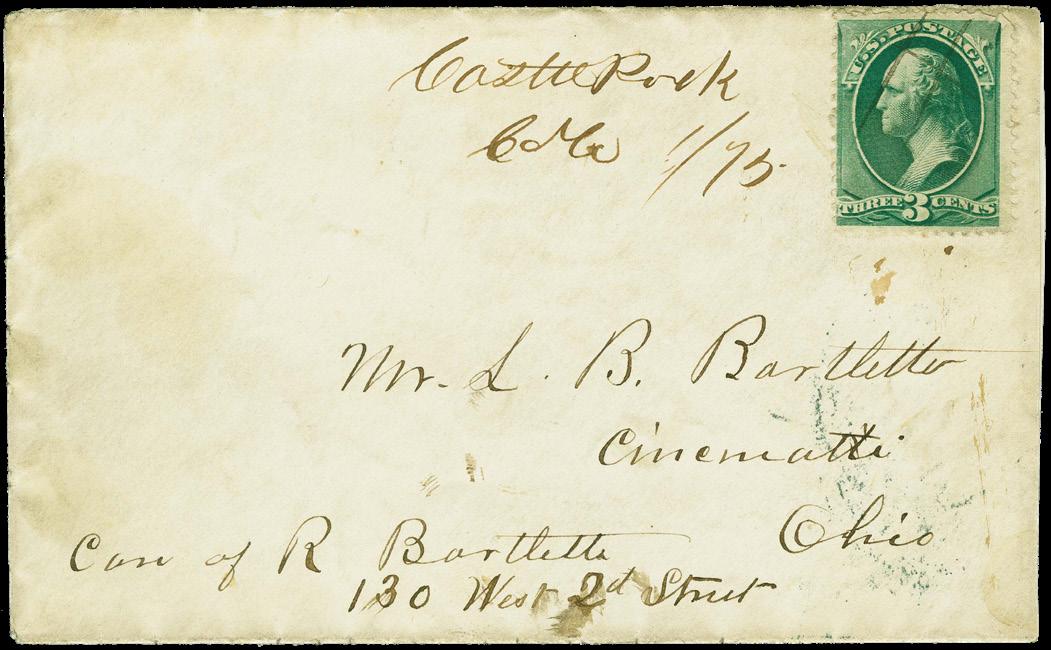 Castle Rock
Colo 1/75
U.S. POSTAGE
THREE 3 CENTS
Mr. L. B. Bartlette
Cincinatti
Ohio
Care of R Bartlette
130 West 2d Street